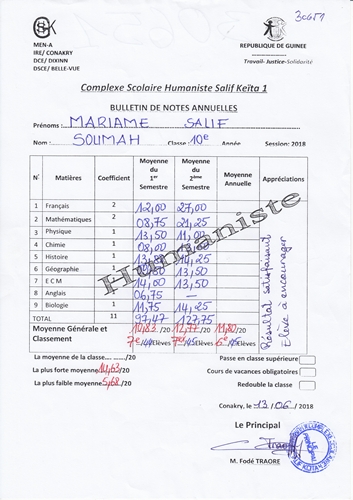 30651
CSK
MEN-A
IRE/ CONAKRY
DCE/ DIXINN
DSCE/ BELLE-VUE
REPUBLIQUE DE GUINEE
Travail- Justice-Solidarité
Complexe Scolaire Humaniste Salif Keïta 1
BULLETIN DE NOTES ANNUELLES
Prénoms : MARIAME SALIF
Nom : SOUMAH Classe : 10e Année Session: 2018
N° Matières Coefficient Moyenne du 1er Semestre Moyenne du 2ème Semestre Moyenne Annuelle Appréciations
1 Français 2 12,00 27,00
2 Mathématiques 2 08,75 21,25
3 Physique 1 13,50 11,00
4 Chimie 1 08,00
5 Histoire 1 14,25
6 Géographie 1 13,50
7 E C M 1 14,00 13,50
8 Anglais 1 06,75 —
9 Biologie 1 11,75 14,25
TOTAL 11 97,47 127,75
Résultat satisfaisant
Elève à encourager
Humaniste
Moyenne Générale et Classement 10,83 12,77 11,80
7e/44Elèves 7e/45Elèves 6e/45Elèves
La moyenne de la classe....../20 Passe en classe supérieure
La plus forte moyenne 14,63/20 Cours de vacances obligatoires
La plus faible moyenne 5,68/20 Redouble la classe
Conakry, le 13/06/2018
Le Principal
M. Fodé TRAORE